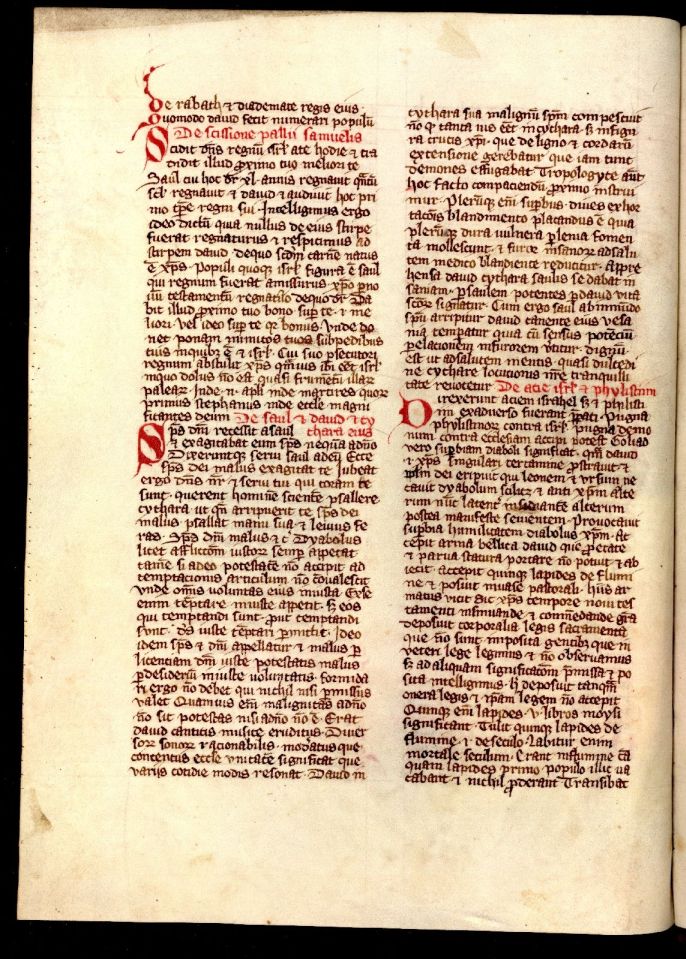 De rabath ⁊ diademate regis eius
Quomodo david fecit numerari populū
De scissione pallii samuelis
Scidit dn̄s regnū isrl̄ a te hodie ⁊ tra
didit illud ꝓximo tuo meliori te
Saul cū hoc dr̄ xl annis regnavit
regnavit ⁊ david ⁊ audivit hoc pri
mo tp̄e regni sui Intelligimus ergo
ideo dictū quia nullus de eius stirpe
fuerat regnaturus ⁊ respicimus ad
stirpem david de quo scdm̄ carnē natus
ē xp̄s populi quoque isrl̄ figura ē saul
qui regnum fuerat amissurus xp̄o ꝑ no
uū testamentū regnaturo de quo dr̄ Da
bit illud ꝓximo tuo bono sup̄ te ⁊ me
liori vel ideo sup̄ te qr bonus unde do
nec ponam inimicos tuos sub pedibus
tuis in quibꝫ ē ⁊ isrl̄ Cui suo ꝑsecutori
regnum abstulit xp̄s qm̄uis ibi eēt isrl̄
in quo dolus nō est quasi frumentū illarꝫ
palearꝫ Inde n̄ apl̄i inde martires quorꝫ
primus stephanus inde eccl̄e magni
ficantes deum De saul ⁊ david ⁊ cy
thara eius
Sp̄s dn̄i recessit a saul
⁊ exagitabat eum sp̄s nequā a dn̄o
Dixeruntque servi saul ad eū Ecce
sp̄s dei malus exagitat te Jubeat
ergo dn̄s nr̄ ⁊ servi tui qui coram te
sunt querent hominē scientē psallere
cythara ut qn̄ arripuerit te sp̄s dei
malus psallat manu sua ⁊ levius fe
ras Sp̄s dn̄i malus ⁊c̄ Dyabolus
licet afflictionem iustorꝫ semꝑ appetat
tamē si a deo potestatē nō accipit ad
temptacionis articulum nō cōvalescit
unde om̄is voluntas eius iniusta Ex se
enim tēptare iniuste appetit sꝫ eos
qui temptandi sunt put temptandi
sunt ds̄ iuste tēptari ꝑmittit Ideo
idem sp̄s ⁊ dn̄i appellatur ⁊ malus ꝑ
licentiam dn̄i iuste potestatis malus
ꝑ desideriū iniuste voluntatis formida
ri ergo nō debet qui nichil nisi ꝑmissus
valet Quamvis em̄ malignitas a dn̄o
nō sit potestas nisi a dn̄o nō ē Erat
david canticis musice eruditus Diver
sorꝫ sonorꝫ racionabilis modatusque
concentus eccl̄e unitatē significat que
variis cotidie modis resonat David in
cythara sua malignū spm̄ compescuit
nō qꝫ tanta vis eēt in cythara sꝫ in figu
ra crucis xp̄i que de ligno ⁊ cordarū
extensione gerebatur que iam tunc
demones effugabat Tropologyce aut̄
hoc facto compaciendū ꝓximo instrui
mur Plerūque em̄ supbus dives exhor
tacōis blandimento placandus ē quia
plerūque dura vulnera ꝑ lenia fomen
ta mollescunt ⁊ furor insanorꝫ ad salu
tem medico blandiente reducitur Appre
hensa david cythara saulis sedabat in
saniam ꝑ saulem potentes ꝑ david vita
scōrꝫ signatur Cum ergo saul ab inmūdo
spū arripitur david canente eius vesa
nia tempatur quia cū sensus potētū
ꝑ elacionem in furorem vtitur dignū
est ut ad salutem mentis quasi dulcedi
ne cythare locucionis nr̄e tranquilli
tate revocetur De acie isrl̄ ⁊ phylistīm
Direxerunt aciem israhel sꝫ ⁊ philisti
im ex adverso fuerant parati Pugna
phylistinorꝫ contra isrl̄ pugna demo
num contra ecclesiam accipi potest Goliad
vero supbiam diaboli significat qm̄ david
⁊ xp̄s singulari certamine prostravit ⁊
ipsm̄ dei eripuit qui leonem ⁊ ursum ne
cavit dyabolum scilicꝫ ⁊ anti xpm̄ alte
rum nūc latenter insidiantē alterum
postea manifeste sevientem Provocavit
supbia humilitatem diabolus xpm̄ Ac
cepit arma bellica david que p̄ etate
⁊ parva statura portare nō potuit ⁊ ab
iecit accepit quinque lapides de flumi
ne ⁊ posuit in vase pastorali Hiis ar
matus vicit Sic xp̄s tempore novi tes
tamenti insinuande ⁊ commendande gr̄a
deposuit corporalia legis sacramenta
que nō sunt imposita gentibꝫ que in
veteri lege legimus ⁊ nō observamus
sꝫ ad aliquam significatōm p̄missa ⁊ po
sita intelligimus Hec deposuit tanqm̄
onera legis ⁊ ipam legem nō accepit
Quinque em̄ lapides v libros moysi
significant Tulit quinque lapides de
flumine i de seculo Labitur enim
mortale seculum Erant in flumine tā
quam lapides primo populo illic va
cabant ⁊ nichil ꝓderant Transibat